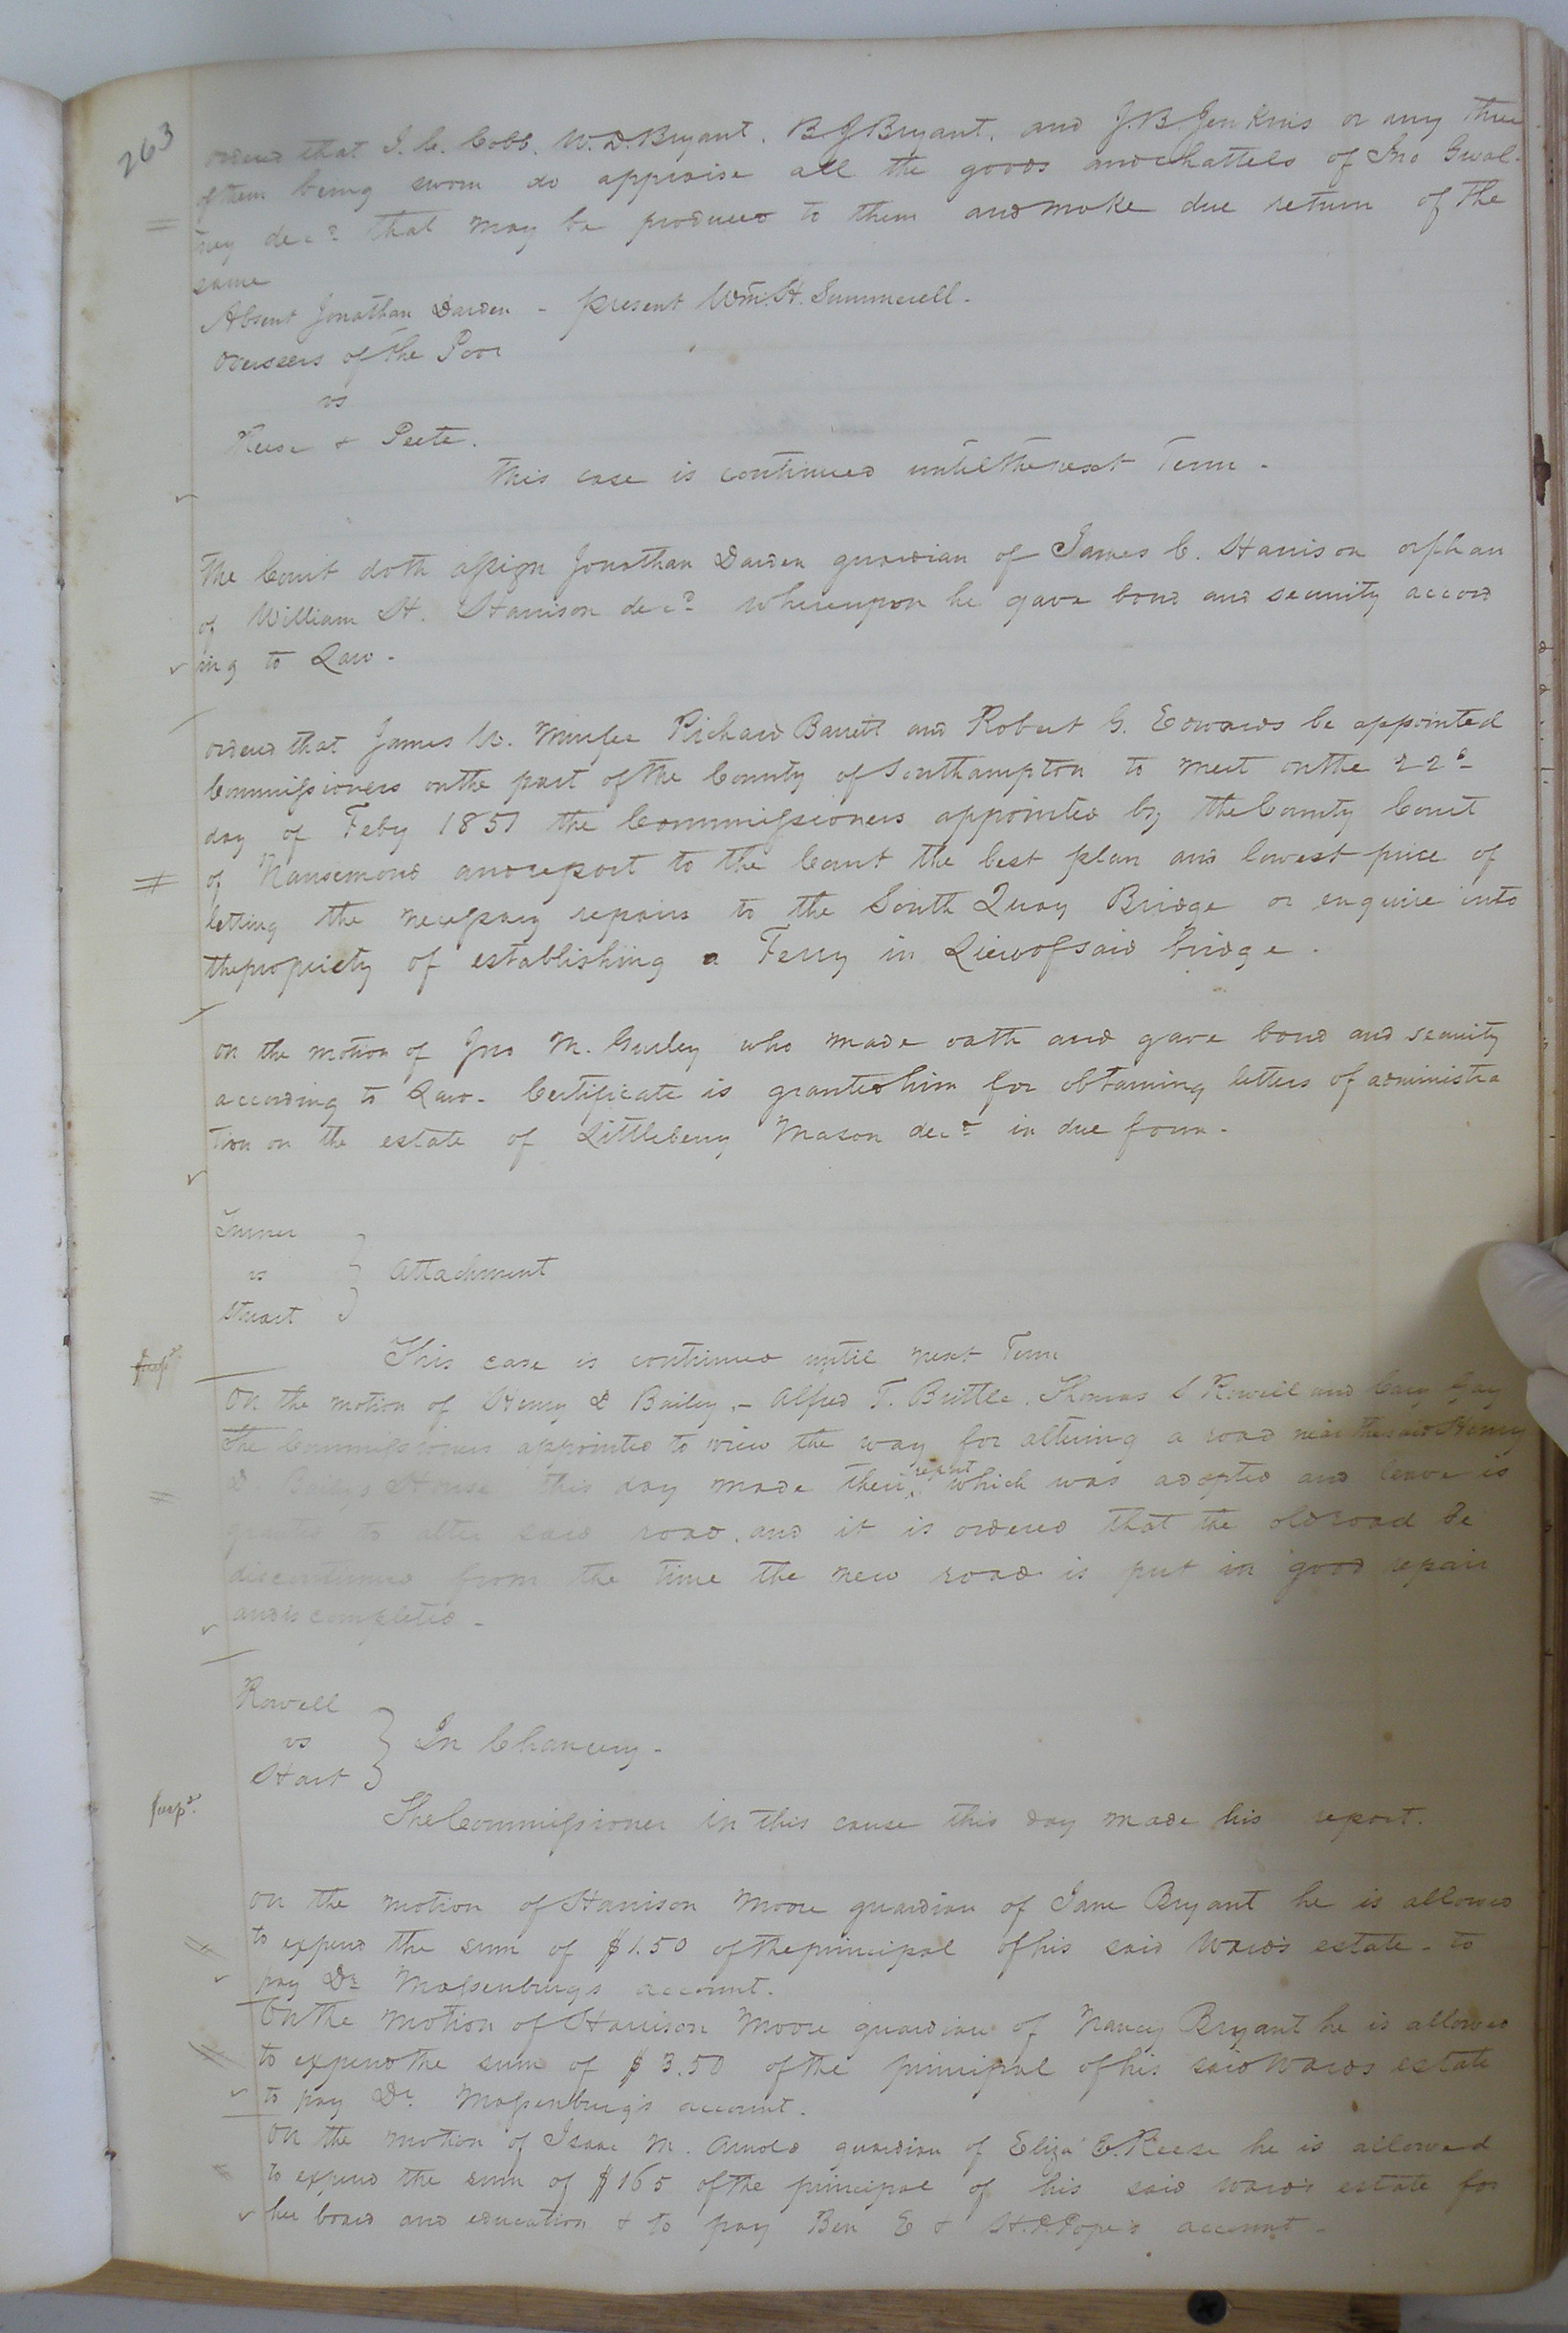 263
ordered that J. C. Cobb. W. D. Bryant. B J Bryant. and J. B. Jenkins or any three
of them being sworn do appraise all the goods and chattels of Jno Gwal-
ney decd that may be produced to them and make due return of the
same
Absent Jonathan Darden - present Wm. H. Summerell -
Overseers of the Poor
vs
Reese & Peete.
This case is continued until the next Term -
The Court doth assign Jonathan Darden guardian of James C. Harrison orphan
of William H. Harrison decd whereupon he gave bond and security accord
ing to Law -
ordered that James W. Richard Barrett and Robert G. Edwards be appointed
Commissioners on the part of the County of Southampton to meet on the 22d
day of Feby 1851 the Commissioners appointed by the County Court
of Nansemond and report to the Court the best plan and lowest price of
letting the necessary repairs to the South Quay Bridge or enquire into
the propriety of establishing a Ferry in Liew of said bridge .
On the motion of Jno M. Gurley who made oath and gave bond and security
according to Law - Certificate is granted him for obtaining letters of administra
tion on the estate of Littleberry Mason decd in due form -
Turner
vs
Stuart
} Attachment
This case is continued until next Term
On the motion of Henry D Bailey - Alfred T. Brittle. Thomas S Rowell and Cary Gay
the Commissioners appointed to view the way for altering a road near the said Henry
D Baileys House this day made their report which was adopted and leave is
granted to alter said road. and it is ordered that the old road be
discontinued from the time the new road is put in good repair
and is completed -
Rowell
vs
Hart
} In Chancery -
suspd.
The Commissioner in this cause this day made his report.
On the motion of Harrison Moore guardian of Jane Bryant he is allowed
to expend the sum of $1.50 of the principal of his said Wards estate - to
pay Dr Massenburgs account.
On the motion of Harrison Moore guardian of Nancy Bryant he is allowed
to expend the sum of $3.50 of the principal of his said Wards estate
to pay Dr. Massenburg's account.
On the motion of Isaac M. Arnold guardian of Eliza E. Reese he is allowed
to expend the sum of $165 of the principal of his said ward's estate for
her board and education & to pay Ben E & H. P. Pope's account -